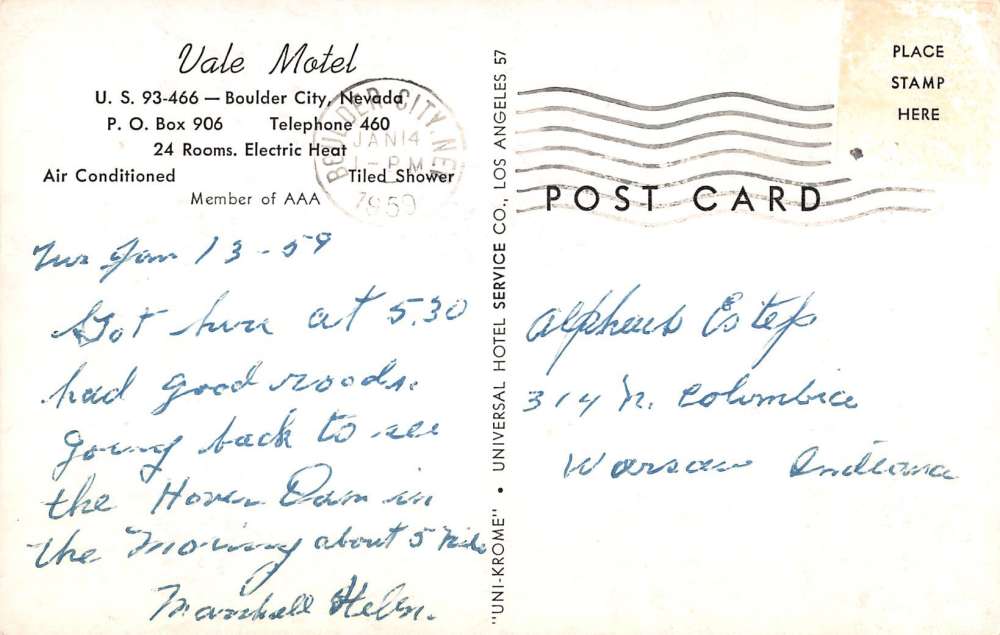 Vale Motel
U. S. 93-466 — Boulder City, Nevada
P. O. Box 906 Telephone 460
24 Rooms. Electric Heat
Air Conditioned Tiled Shower
Member of AAA
BOULDER CITY, NEV
JAN 14
1 - PM
1959
Tus Jan 13 - 59
Got here at 5.30
had good roads.
going back to see
the Hover Dam in
the Morning about 5 Mile
Marshall Helen.
"UNI-KROME" • UNIVERSAL HOTEL SERVICE CO., LOS ANGELES 57
PLACE
STAMP
HERE
POST CARD
Alpheus Estep
314 N. Columbia
Warsaw Indiana